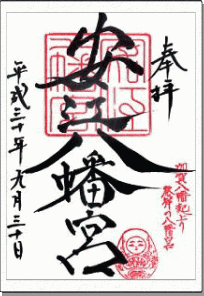 奉拝
安江八幡宮
平成三十年九月三十日
加賀八幡起上り
発祥の八幡宮